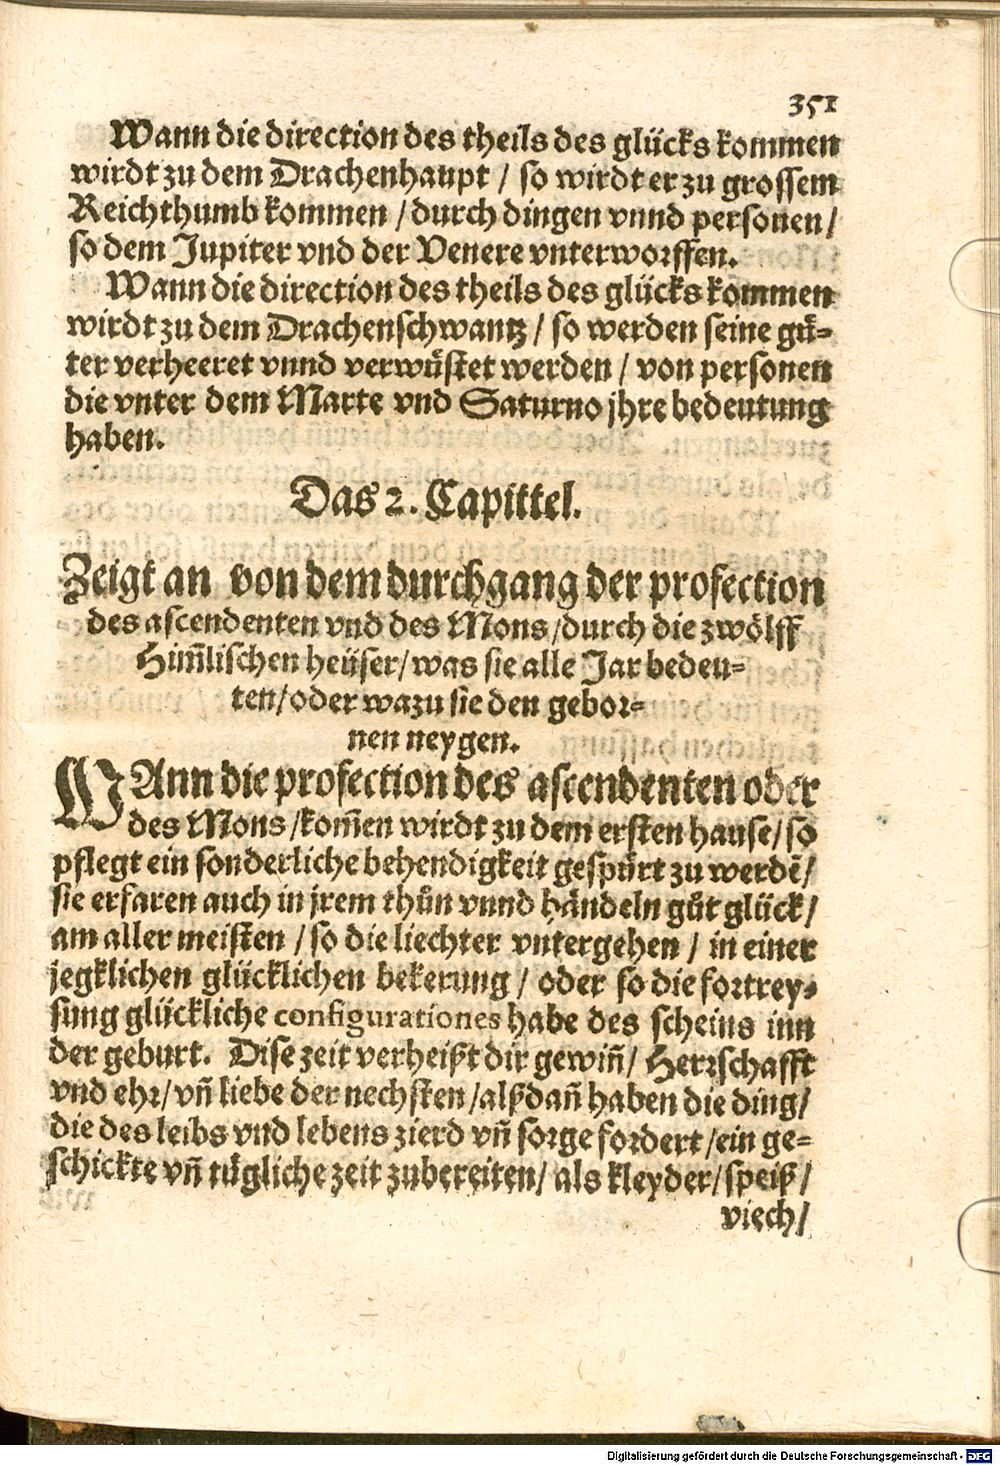 351
Wann die direction des theils des glücks kommen
wirdt zu dem Drachenhaupt / so wirdt er zu grossem
Reichthumb kommen / durch dingen vnnd personen /
so dem Jupiter vnd der Venere vnterworffen.
Wann die direction des theils des glücks kommen
wirdt zu dem Drachenschwantz / so werden seine gü-
ter verheeret vnnd verwüstet werden / von personen
die vnter dem Marte vnd Saturno jhre bedeutung
haben.
Das 2. Capittel.
Zeigt an von dem durchgang der profection
des ascendenten vnd des Mons / durch die zwölff
Him̃lischen heüser / was sie alle Jar bedeu-
ten / oder wazu sie den gebor-
nen neygen.
WAnn die profection des ascendenten oder
des Mons / kom̃en wirdt zu dem ersten hause / so
pflegt ein sonderliche behendigkeit gespürt zu werdẽ /
sie erfaren auch in jrem thůn vnnd händeln gůt glück /
am aller meisten / so die liechter vntergehen / in einer
jegklichen glücklichen bekerung / oder so die fortrey-
sung glückliche configurationes habe des scheins inn
der geburt. Dise zeit verheißt dir gewiñ / Herrschafft
vnd ehr / vñ liebe der nechsten / alßdañ haben die ding /
die des leibs vnd lebens zierd vñ sorge fordert / ein ge-
schickte vñ tügliche zeit zubereiten / als kleyder / speiß /
viech /
Digitalisierung gefördert durch die Deutsche Forschungsgemeinschaft - DFG